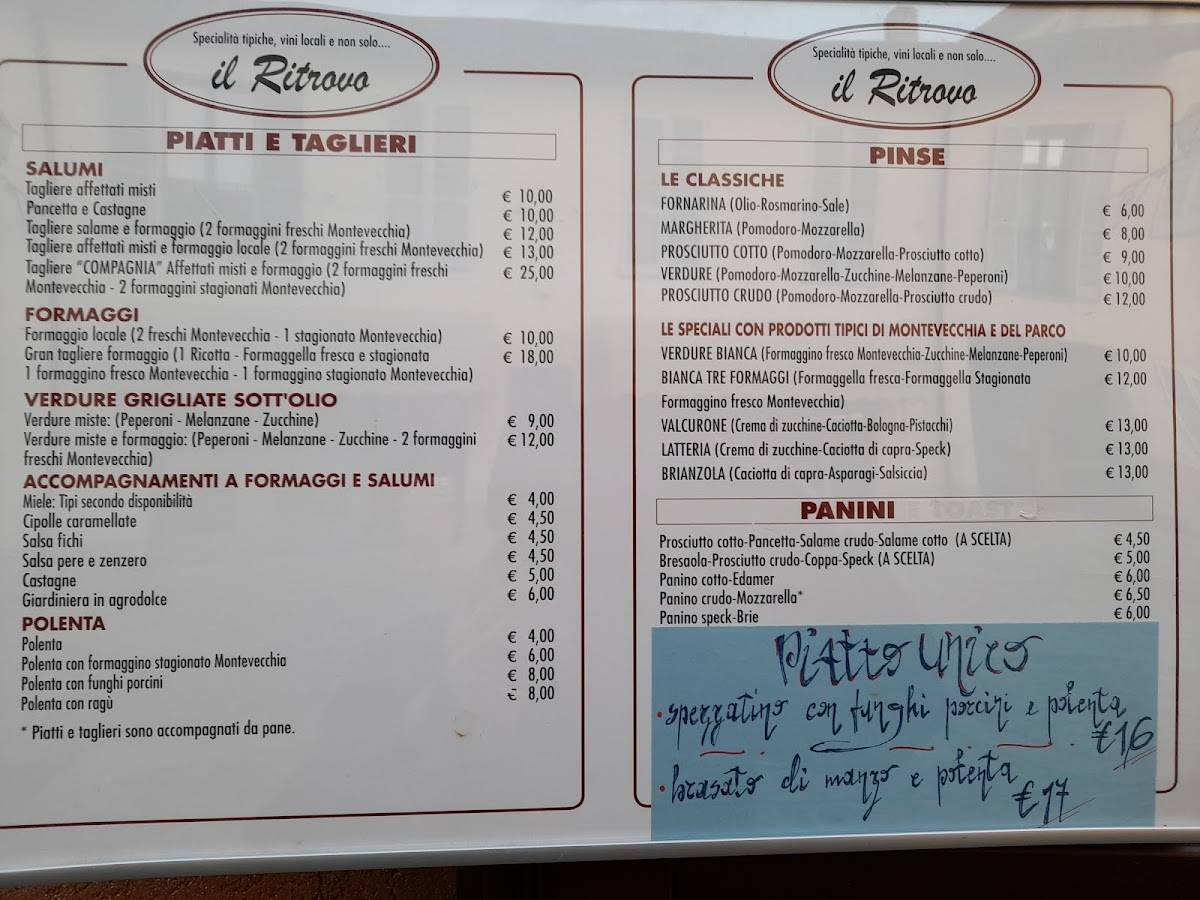 Specialità tipiche, vini locali e non solo....
il Ritrovo
PIATTI E TAGLIERI
SALUMI
Tagliere affettati misti € 10,00
Pancetta e Castagne € 10,00
Tagliere salame e formaggio (2 formaggini freschi Montevecchia) € 12,00
Tagliere affettati misti e formaggio locale (2 formaggini freschi Montevecchia) € 13,00
Tagliere "COMPAGNIA" Affettati misti e formaggio (2 formaggini freschi € 25,00
Montevecchia - 2 formaggini stagionati Montevecchia)
FORMAGGI
Formaggio locale (2 freschi Montevecchia - 1 stagionato Montevecchia) € 10,00
Gran tagliere formaggio (1 Ricotta - Formaggella fresca e stagionata € 18,00
1 formaggino fresco Montevecchia - 1 formaggino stagionato Montevecchia)
VERDURE GRIGLIATE SOTT'OLIO
Verdure miste: (Peperoni - Melanzane - Zucchine) € 9,00
Verdure miste e formaggio: (Peperoni - Melanzane - Zucchine - 2 formaggini € 12,00
freschi Montevecchia)
ACCOMPAGNAMENTI A FORMAGGI E SALUMI
Miele: Tipi secondo disponibilità € 4,00
Cipolle caramellate € 4,50
Salsa fichi € 4,50
Salsa pere e zenzero € 4,50
Castagne € 5,00
Giardiniera in agrodolce € 6,00
POLENTA
Polenta € 4,00
Polenta con formaggino stagionato Montevecchia € 6,00
Polenta con funghi porcini € 8,00
Polenta con ragù € 8,00
* Piatti e taglieri sono accompagnati da pane.
Specialità tipiche, vini locali e non solo....
il Ritrovo
PINSE
LE CLASSICHE
FORNARINA (Olio-Rosmarino-Sale) € 6,00
MARGHERITA (Pomodoro-Mozzarella) € 8,00
PROSCIUTTO COTTO (Pomodoro-Mozzarella-Prosciutto cotto) € 9,00
VERDURE (Pomodoro-Mozzarella-Zucchine-Melanzane-Peperoni) € 10,00
PROSCIUTTO CRUDO (Pomodoro-Mozzarella-Prosciutto crudo) € 12,00
LE SPECIALI CON PRODOTTI TIPICI DI MONTEVECCHIA E DEL PARCO
VERDURE BIANCA (Formaggino fresco Montevecchia-Zucchine-Melanzane-Peperoni) € 10,00
BIANCA TRE FORMAGGI (Formaggella fresca-Formaggella Stagionata € 12,00
Formaggino fresco Montevecchia)
VALCURONE (Crema di zucchine-Caciotta-Bologna-Pistacchi) € 13,00
LATTERIA (Crema di zucchine-Caciotta di capra-Speck) € 13,00
BRIANZOLA (Caciotta di capra-Asparagi-Salsiccia) € 13,00
PANINI E TOAST
Prosciutto cotto-Pancetta-Salame crudo-Salame cotto (A SCELTA) € 4,50
Bresaola-Prosciutto crudo-Coppa-Speck (A SCELTA) € 5,00
Panino cotto-Edamer € 6,00
Panino crudo-Mozzarella* € 6,50
Panino speck-Brie € 6,00
Piatto Unico
• spezzatino con funghi porcini e polenta
€ 16
• brasato di manzo e polenta
€ 17